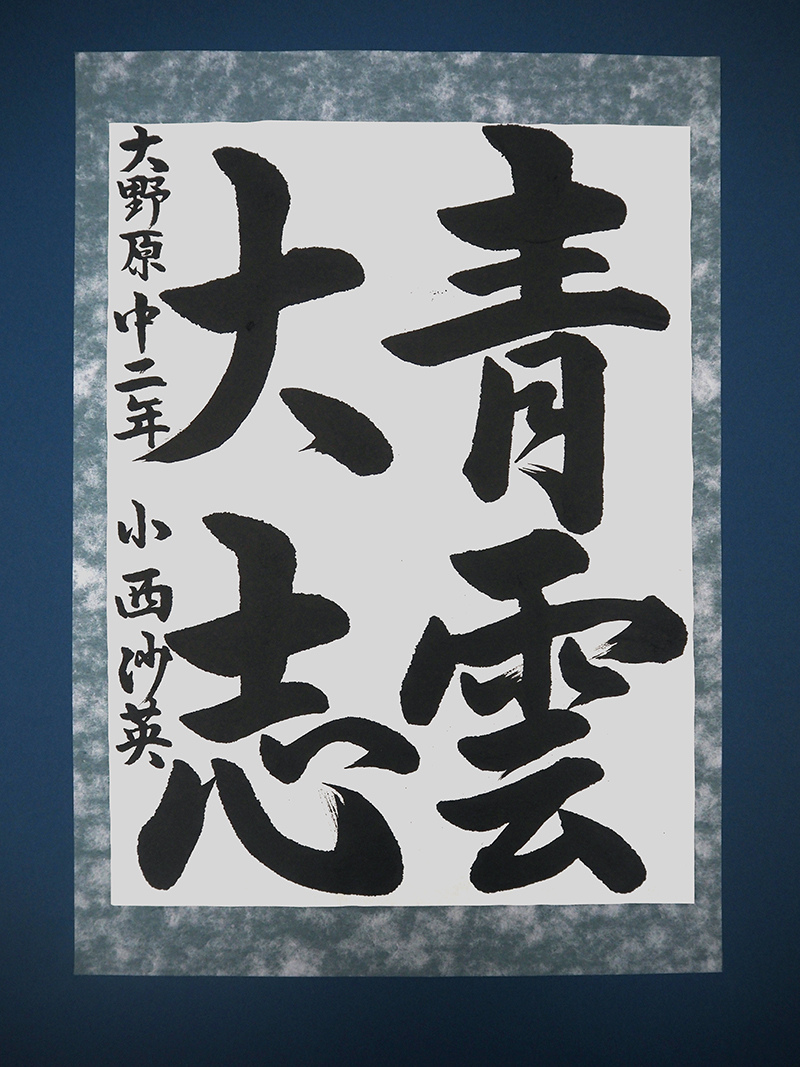 青雲
大志
大野原中二年 小西沙英